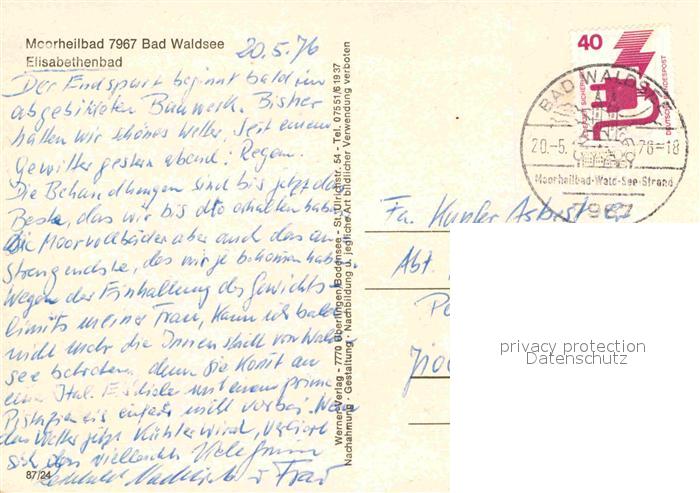 Moorheilbad 7967 Bad Waldsee
Elisabethenbad
20.5.76
Der Endspurt beginnt bald im
abgebildeten Bauwerk. Bisher
hatten wir schönes Wetter, seit einem
Gewitter gestern abend: Regen.
Die Behandlungen sind bis jetzt das
Beste, das wir bis dto erhalten hab
Die Moorvollbäder aber auch das an
strengendste, das wir je bekommen hab
Wegen der Einhaltung des Gewichts
limits meiner Frau, kann ich bald
nicht mehr die Innenstadt von Wald
see betreten, denn die kommt an
ein Ital. Eisdiele mit einem prima
Pistazien eis einfach nicht vorbei. Wenn
das Wetter jetzt kühler wird, verliert
sich das vielleicht. Viele
u Frau
87/24
Werner-Verlag - 7770 Überlingen/Bodensee - St.-Ulrichstr. 54 - Tel. 07551/61937
Nachahmung - Gestaltung - Nachbildung u. jegliche Art bildlicher Verwendung verboten
40
DEUTSCHE BUNDESPOST
BAD WALDSEE
20.-5.
76-18
Moorheilbad-Wald-See-Strand
7967
Fa.
Asbest
Abt.
privacy protection
Datenschutz